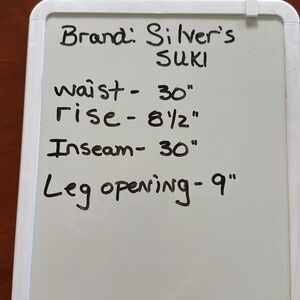 Brand: Silver's
SUKI
waist - 30"
rise - 8 1/2"
Inseam - 30"
Leg opening - 9"